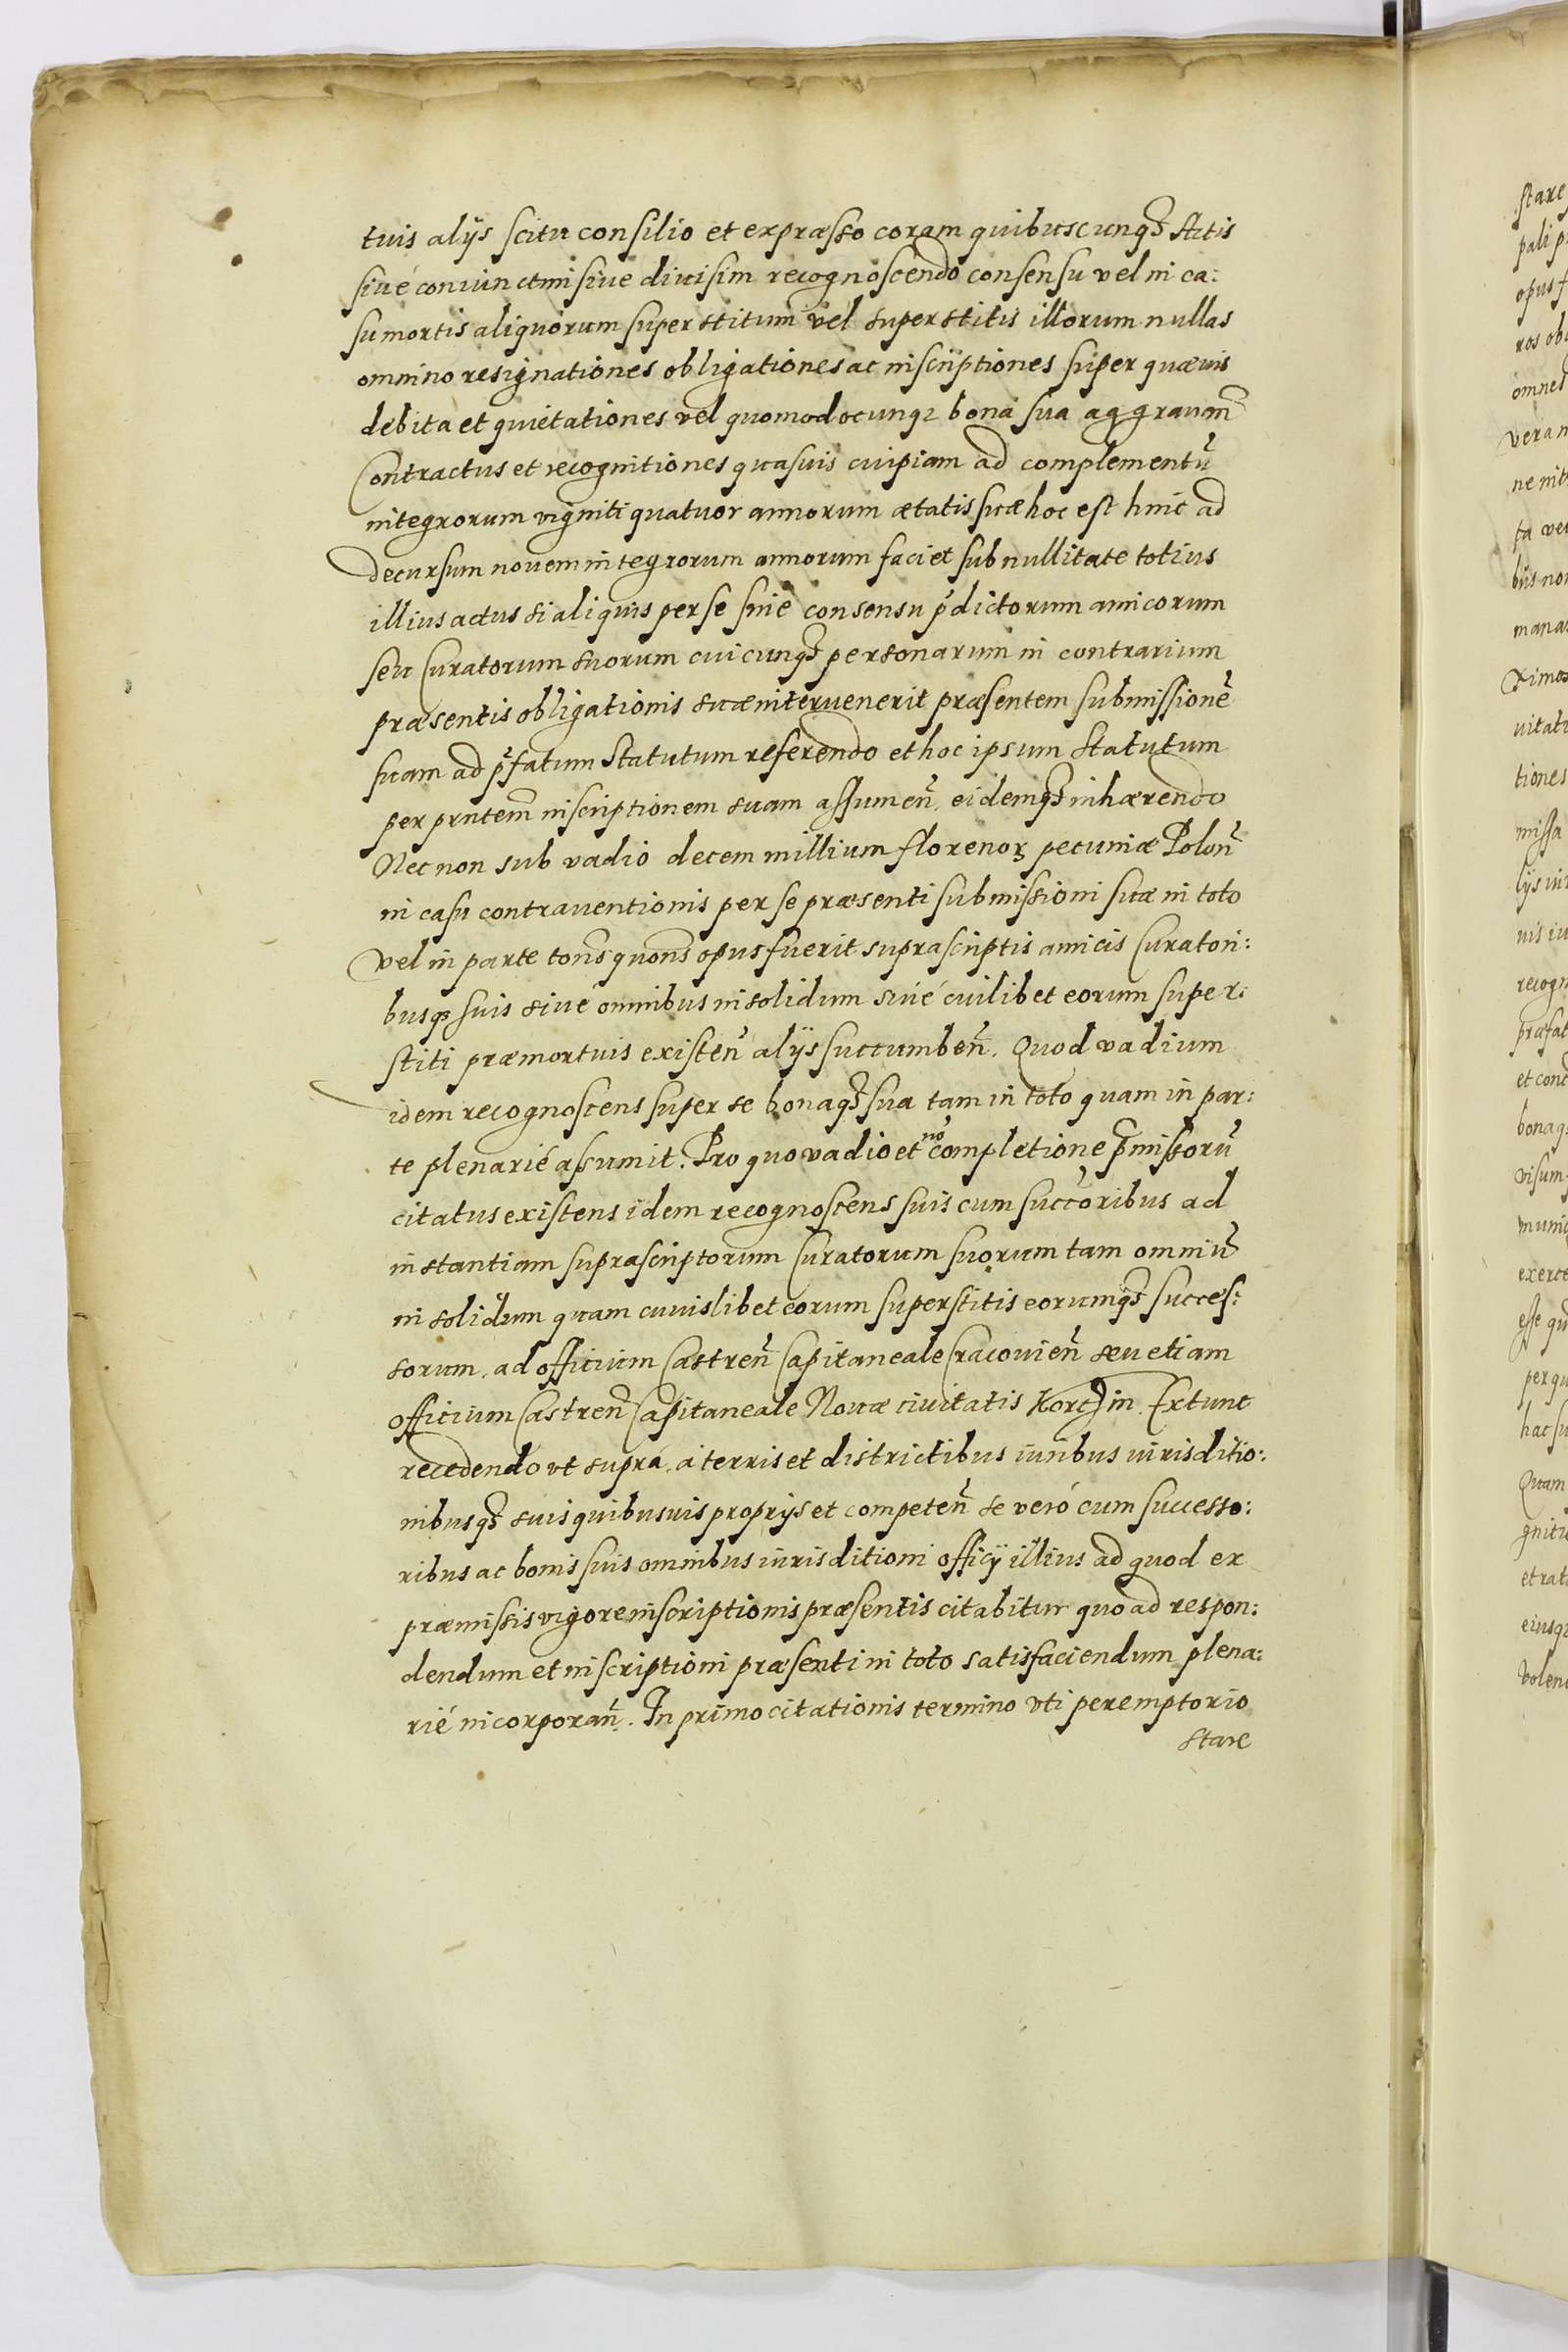 tuis alijs scitu consilio et expraesso coram quibuscunqꝫ Actis
siué coniunctim siue diuisim recognoscendo consensu vel in ca:
su mortis aliquorum superstitum vel superstitis illorum nullas
omnino resignationes obligationes ac inscriptiones super quaeuis
debita et quietationes vel quomodocunqꝫ bona sua aggrauan̄
Contractus et recognitiones quasuis cuipiam ad complementū
integrorum viginti quatuor annorum aetatis suae hoc est hinc ad
decursum nouem integrorum annorum faciet sub nullitate totius
illius actus si aliquis per se sine consensu p̄dictorum amicorum
seu Curatorum suorum cuicunqꝫ personarum in contrarium
praesentis obligationis suae interuenerit praesentem submissionē
suam ad p̄fatum Statutum referendo et hoc ipsum Statutum
per pn̄tem inscriptionem suam assumen̄. eidemqꝫ inhaerendo
Nec non sub vadio decem millium florenoꝝ pecuniae Polon̄
in casu contrauentionis per se praesenti submissioni suae in toto
vel in parte toties quoties opus fuerit suprascriptis amicis Curatori:
busqꝫ suis siué omnibus in solidum siué cuilibet eorum super:
stiti praemortuis existen̄ alijs succumben̄. Quod vadium
idem recognoscens super se bonaqꝫ sua tam in toto quam in par:
te plenarié assumit. Pro quo vadio et no̅ completione p̄missorū
citatus existens idem recognoscens suis cum succōribus ad
instantiam suprascriptorum Curatorum suorum tam omniū
in solidum quam cuiuslibet eorum superstitis eorumqꝫ succes:
sorum. ad officium Castren̄ Capitaneale Cracouien̄ seu etiam
officium Castren̄ Capitaneale Nouae ciuitatis Korczin. Extunc
recedendo vt suprá. a terris et districtibus iuribus iurisditio:
nibusqꝫ suis quibusuis proprijs et competen̄ se veró cum successo:
ribus ac bonis suis omnibus iurisditioni officij illius ad quod ex
praemissis vigore inscriptionis praesentis citabitur quo ad respon:
dendum et inscriptioni praesenti in toto satisfaciendum plena:
rié incorporan̄. In primo citationis termino vti peremptorio
stare